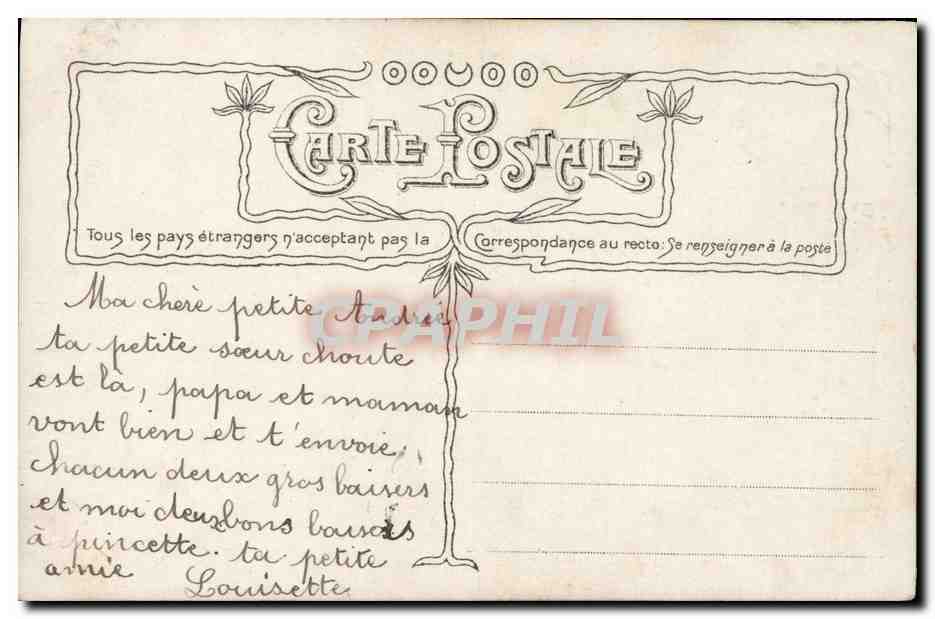 CARTE POSTALE
Tous les pays étrangers n'acceptant pas la Correspondance au recto: Se renseigner à la poste
CPAPHIL
Ma chère petite Andrée,
ta petite sœur choute
est là, papa et maman
vont bien et t'envoie,
chacun deux gros baisers
et moi deux bons baisers
à pincette. ta petite
amie
Louisette